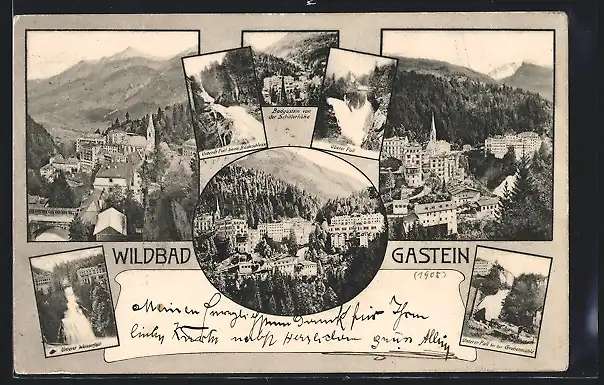 Unterer Fall beim Badeschloss
Badgastein von
der Schillerhöhe
Oberer Fall
WILDBAD GASTEIN
(1905)
Unterer Wasserfall
Unterer Fall bei der Grabenmühle
Meinen herzlichsten Dank für Ihre
liebe Karte nebst herzlichem Gruss